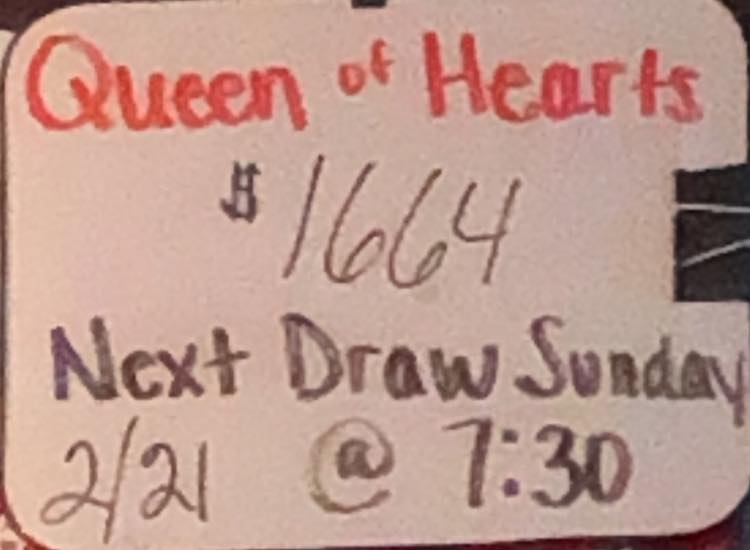 Queen of Hearts
$1664
Next Draw Sunday
2/21 @ 7:30